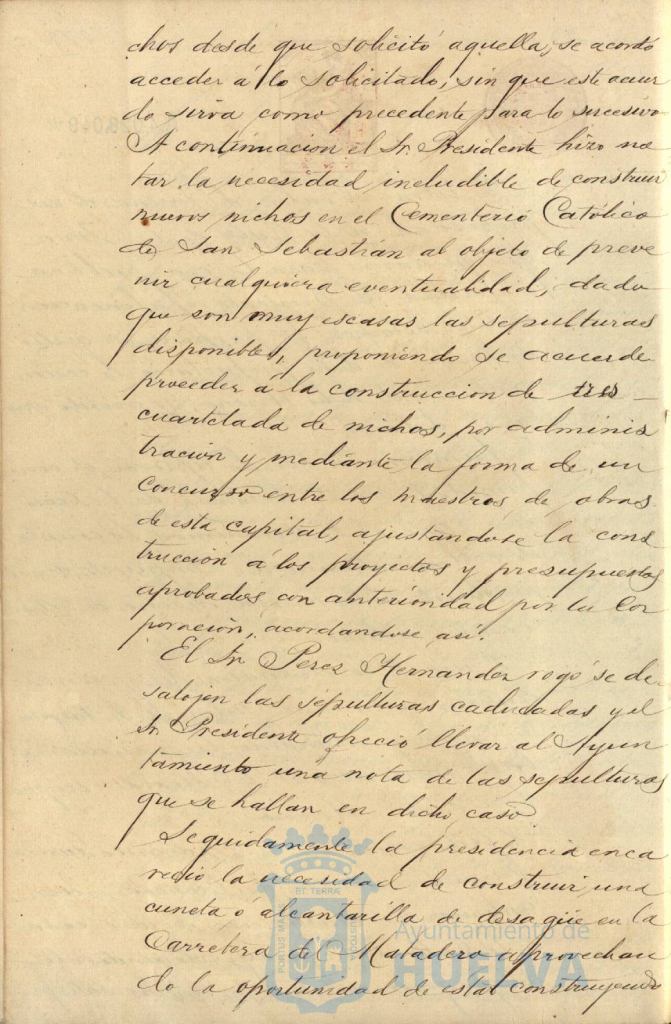 chos desde que solicitó aquella, se acordó
acceder á lo solicitado, sin que este acuer
do sirva como precedente para lo sucesivo
A continuacion el Sr. Presidente hizo no
tar la necesidad ineludible de construir
nuevos nichos en el Cementerio Católico
de San Sebastián al objeto de preve
nir cualquiera eventualidad, dado
que son muy escasas las sepulturas
disponibles, proponiendo se acuerde
proceder á la construccion de tres
cuartelada de nichos, por adminis
tración y mediante la forma de un
concurso entre los maestros de obras
de esta capital, ajustandose la cons
trucción á los proyectos y presupuestos
aprobados con anterioridad por la Cor
poración, acordandose así.
El Sr. Perez Hernandez rogó se de
salojen las sepulturas caducadas y el
Sr Presidente ofreció llevar al Ayun
tamiento una nota de las sepulturas
que se hallan en dicho caso
Seguidamente la presidencia enca
reció la necesidad de construir una
cuneta ó alcantarilla de desagüe en la
Carretera del Matadero aprovechan
do la oportunidad de estar construyendo
Ayuntamiento de
HUELVA